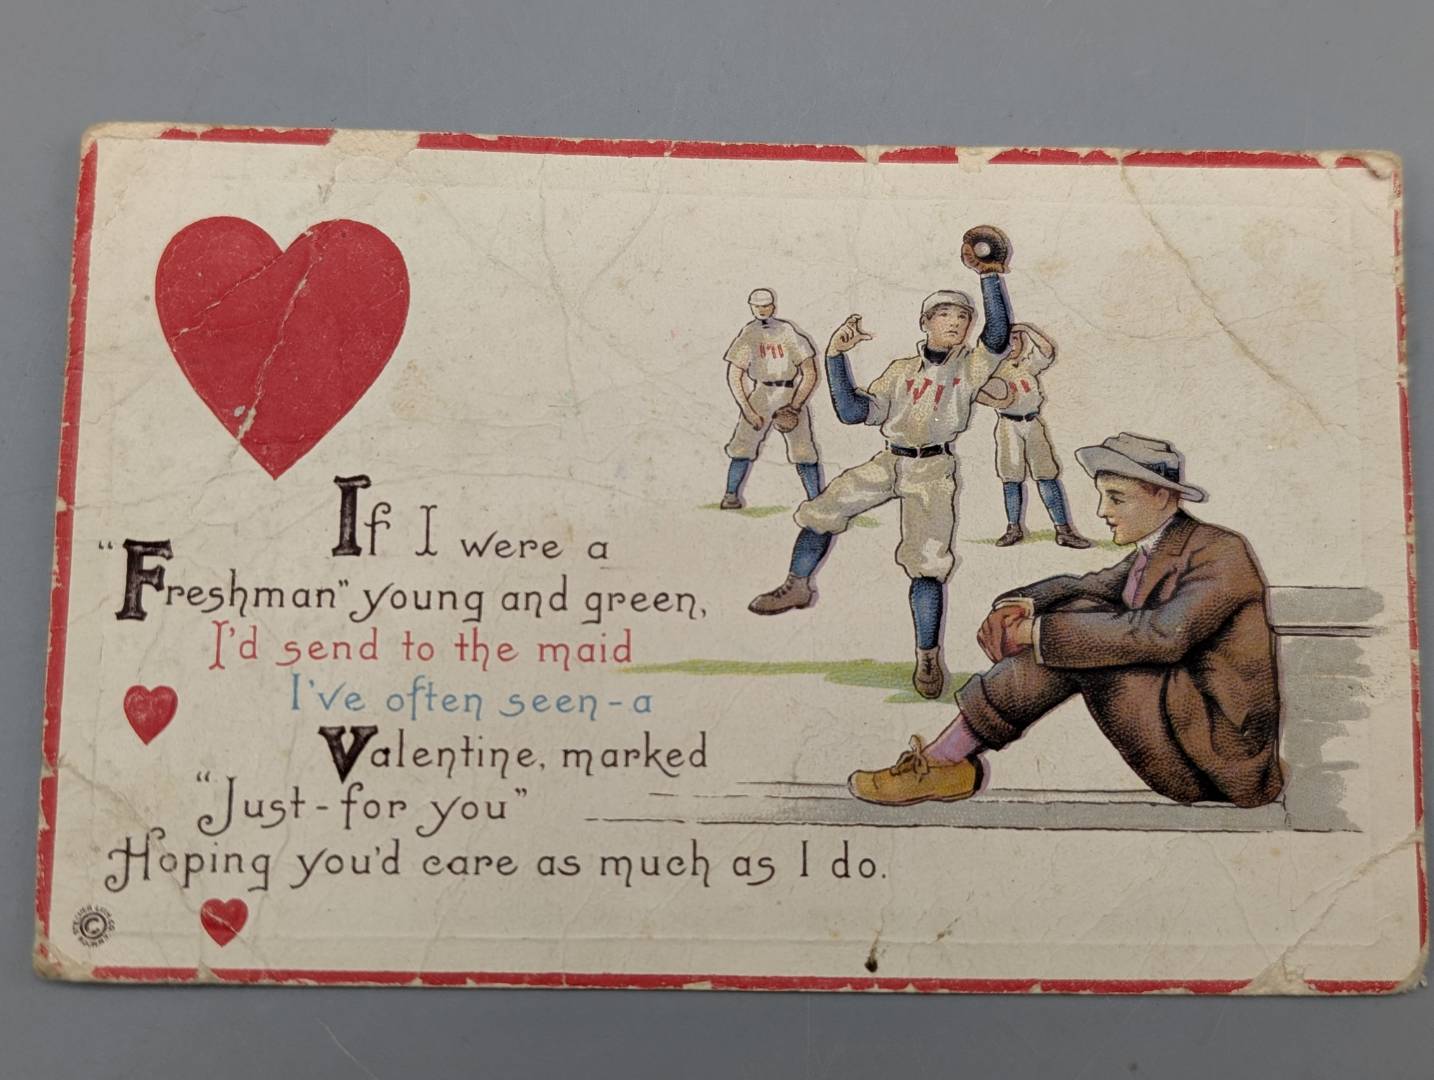 If I were a
"Freshman" young and green,
I'd send to the maid
I've often seen - a
Valentine, marked
"Just - for you"
Hoping you'd care as much as I do.
©